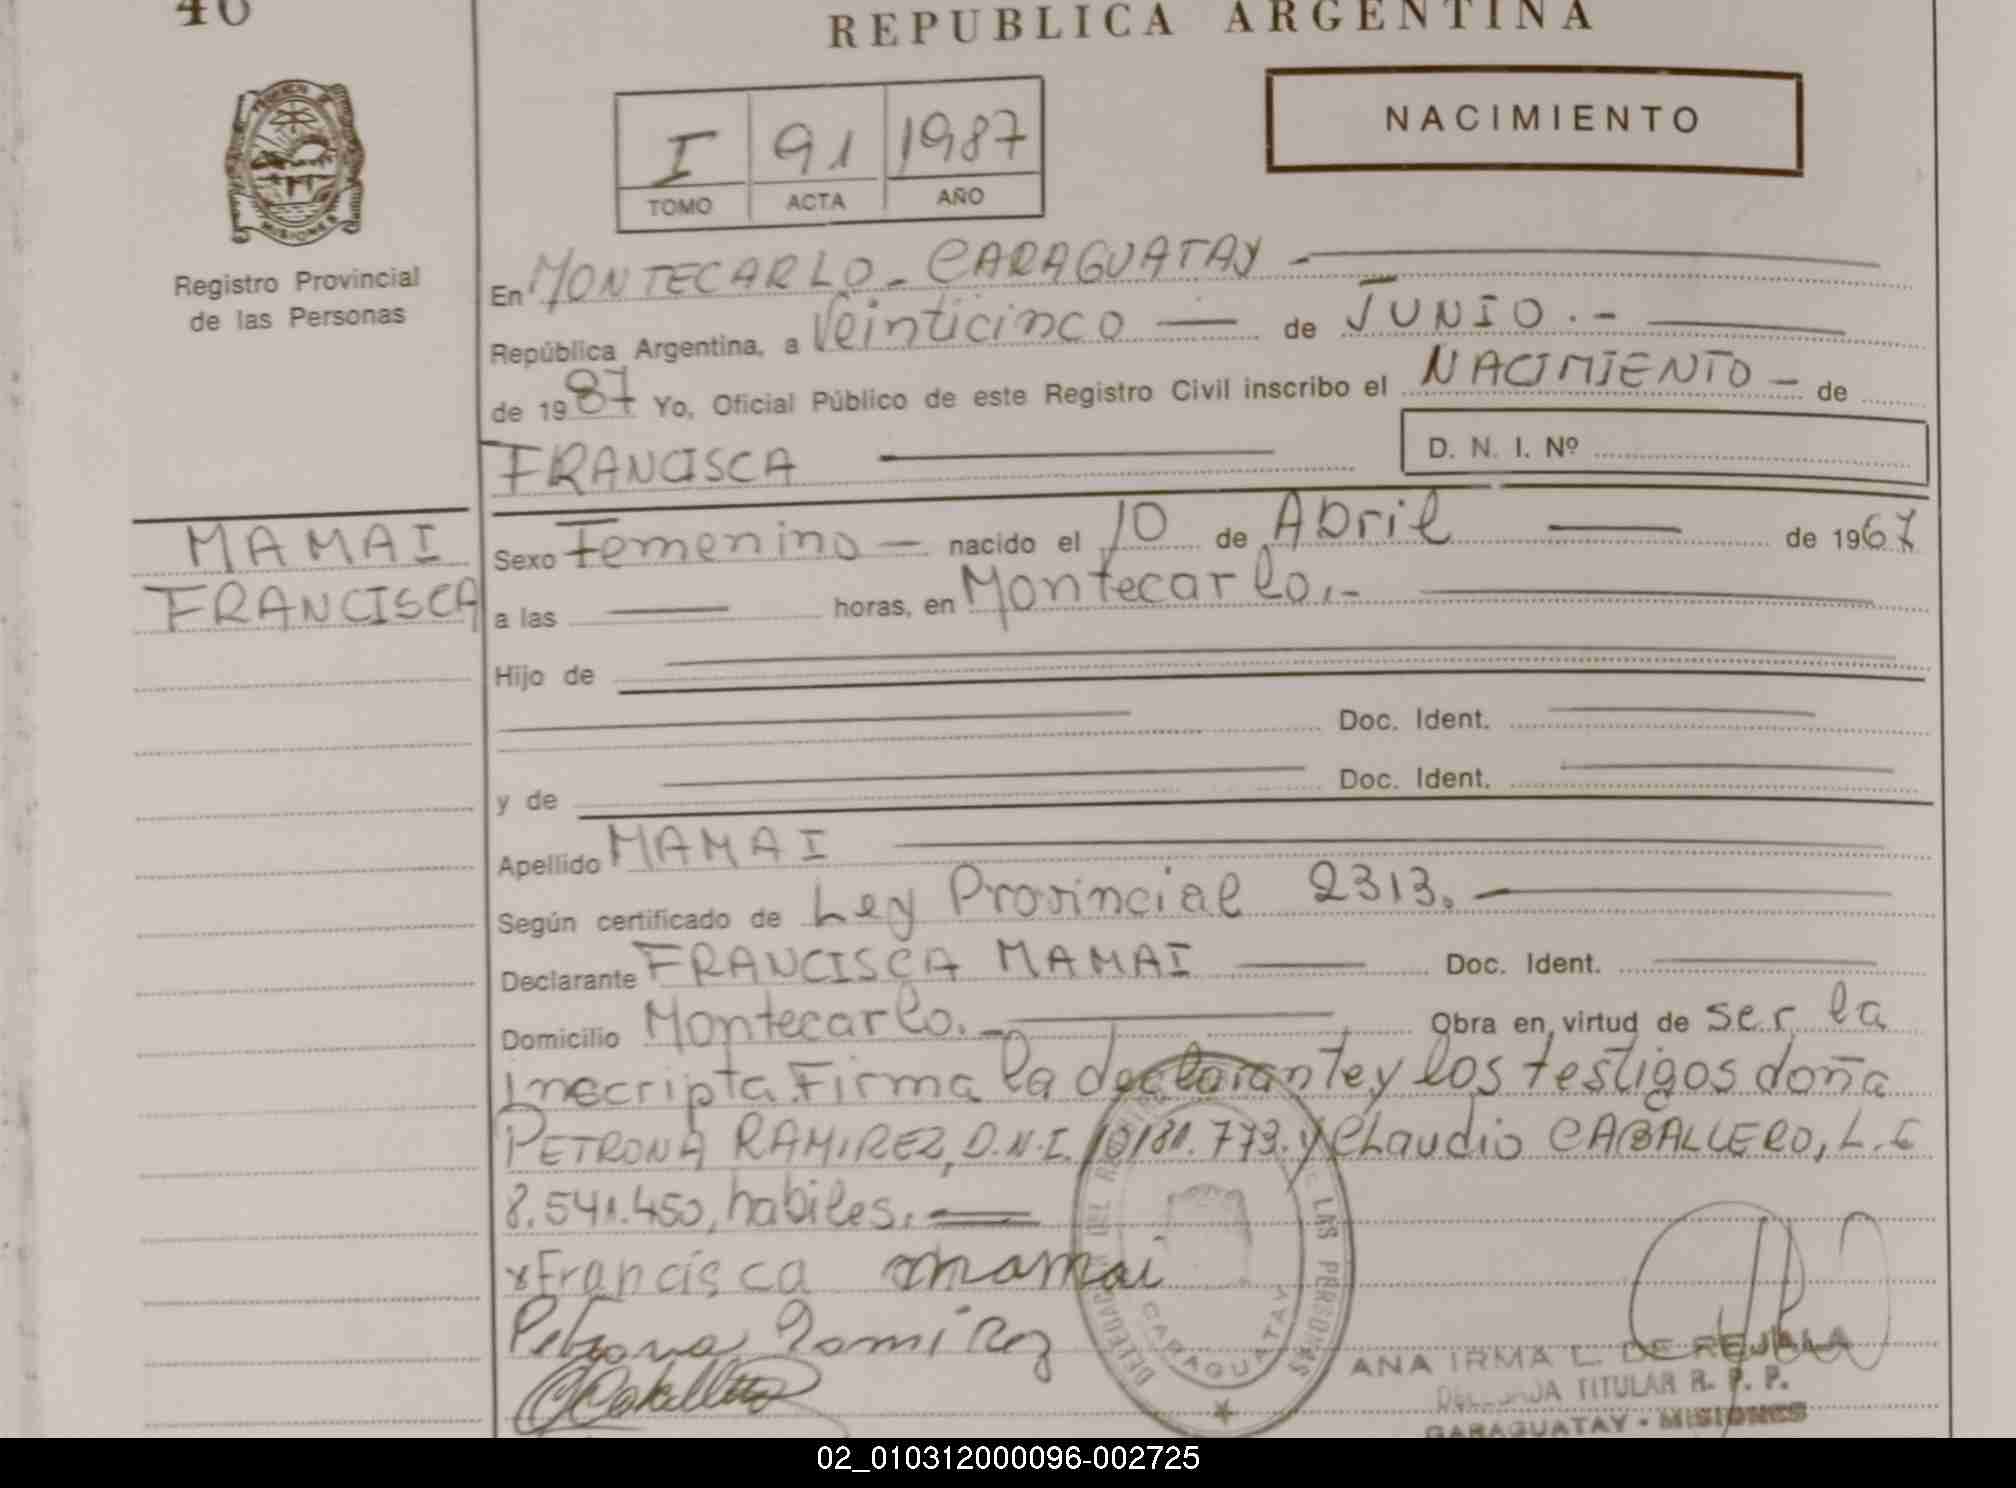 40
REPUBLICA ARGENTINA
PROVINCIA DE MISIONES
Registro Provincial
de las Personas
I 91 1987
TOMO ACTA AÑO
NACIMIENTO
En MONTECARLO - CARAGUATAY
República Argentina, a Veinticinco — de JUNIO.-
de 1987 Yo, Oficial Público de este Registro Civil inscribo el NACIMIENTO - de
FRANCISCA
D. N. I. Nº
MAMAI
FRANCISCA
Sexo Femenino — nacido el 10 de Abril — de 1967
a las — horas, en Montecarlo.-
Hijo de
Doc. Ident.
y de Doc. Ident.
Apellido MAMAI
Según certificado de Ley Provincial 2313.-
Declarante FRANCISCA MAMAI — Doc. Ident.
Domicilio Montecarlo.- Obra en virtud de ser la
inscripta. Firma la declarante y los testigos doña
PETRONA RAMIREZ, D.N.I. 10.181.773. y Claudio CABALLERO, L.E
8.541.450, habiles.
x Francisca mamai
Petrona Ramirez
DEL REGISTRO LAS PERSONAS
CARAGUATAY
ANA IRMA L. DE REJALA
TITULAR R. P. P.
CARAGUATAY - MISIONES
02_010312000096-002725